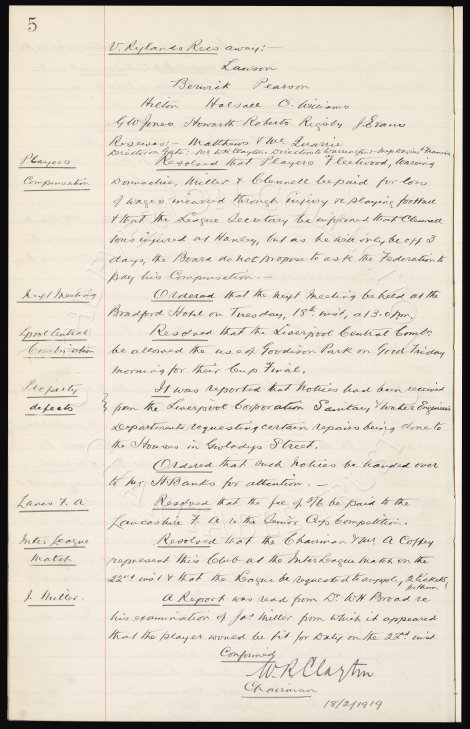 5
V. Rylands Rees away:-
Lawson
Berwick Pearson
Hilton Halsall O. Williams
G W Jones Howarth Roberts Rigsby J. Evans
Reserves:- Matthews & Mc Quarrie
Director Gate:- Mr W R Clayton. Directors to Warrington:-
Players Compensation
Resolved that Players Fleetwood, Wareing
Donnachie, Miller & Clennell be paid for loss
of wages incurred through injury or playing football
& that the League Secretary be informed that Clennell
was injured at Hanley, but as he will only be off 3
days, the Board do not propose to ask the Federation to
pay his Compensation.-
Next Meeting
Ordered that the next Meeting be held at the
Bradford Hotel on Tuesday, 18th inst, at 3.0 p.m.
Lpool Central Combination
Resolved that the Liverpool Central Combn.
be allowed the use of Goodison Park on Good Friday
morning for their Cup Final.
Property defects
It was reported that Notices had been received
from the Liverpool Corporation Sanitary & Water Engineers
Departments requesting certain repairs being done to
the Houses in Gwladys Street.
Ordered that such Notices be handed over
to Mr H Banks for attention.-
Lancs F. A
Resolved that the fee of be paid to the
Lancashire F. A re the Senior Cup Competition.
Inter League Match
Resolved that the Chairman & Mr A Coffey
represent this Club at the Inter League Match on the
22nd inst & that the League be requested to supply 2 tickets
for them.
J. Miller.
A Report was read from Dr. W H Broad re
his examination of Jas. Miller from which it appeared
that the player would be fit for duty on the 22nd inst
Confirmed
W. R Clayton
Chairman
18/2/1919